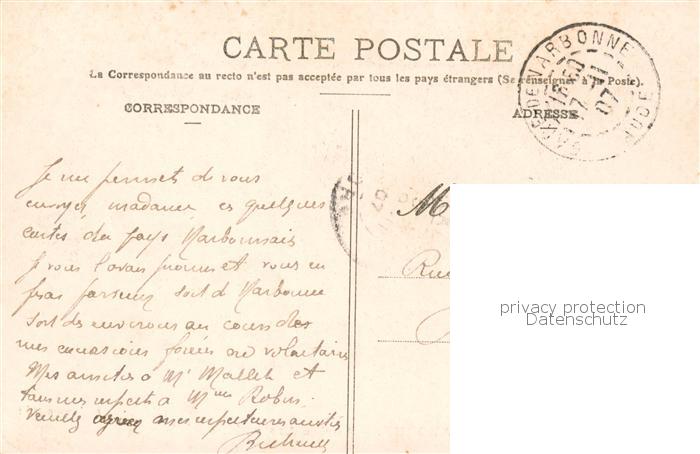 CARTE POSTALE
La Correspondance au recto n'est pas acceptée par tous les pays étrangers (Se renseigner à la Poste).
CORRESPONDANCE
ADRESSE
NARBONNE
AUDE
07
Je me permets de vous
envoyer, madame, ces quelques
cartes du pays Narbonnais
Je vous l'avais promis et vous en
ferai parvenir soit de Narbonne
soit des environs au cours de
mes excursions forcées ou volontaires
Mes amitiés à Mr Mallet et
tous mes respects à Mme Robin.
Veuillez agréer mes respectueuses amitiés
M
Rue
privacy protection
Datenschutz